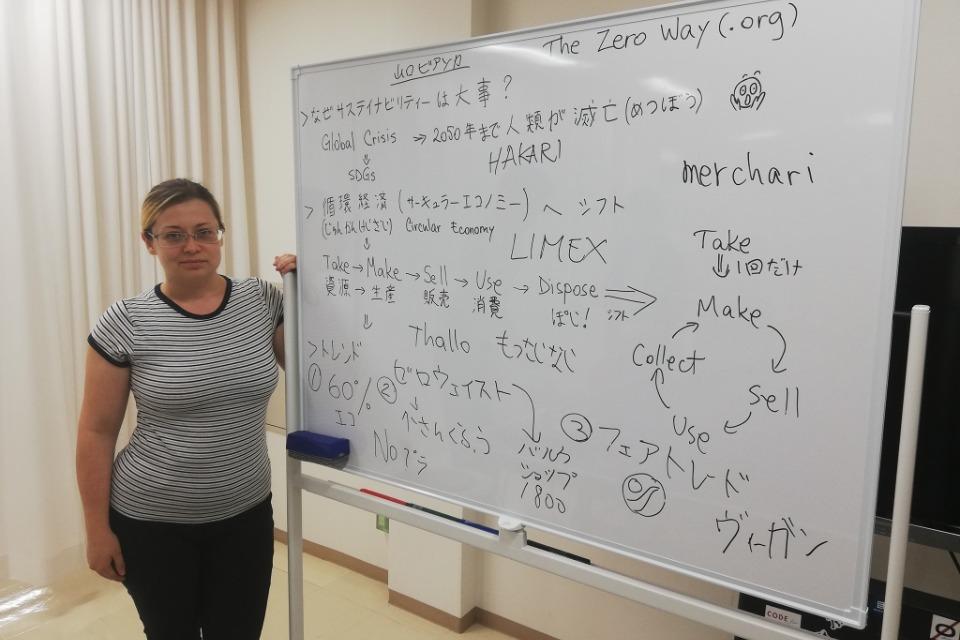 The Zero Way(.org)
>なぜサステイナビリティーは大事?
Global Crisis → 2050年まで人類が滅亡(めつぼう)
SDGs
HAKARI
merchari
>循環経済(サーキュラーエコノミー)へシフト
Circular Economy
LIMEX
Take→Make→Sell→Use→Dispose
資源→生産 販売 消費 ぽじ! シフト
Thallo
>トレンド
① 60% エコ
② ゼロウェイスト
Noプラ
バルク
ショップ
1800
③ フェアトレード
ヴィーガン
Take
1回だけ
Make
Sell
Use
Collect
CODE